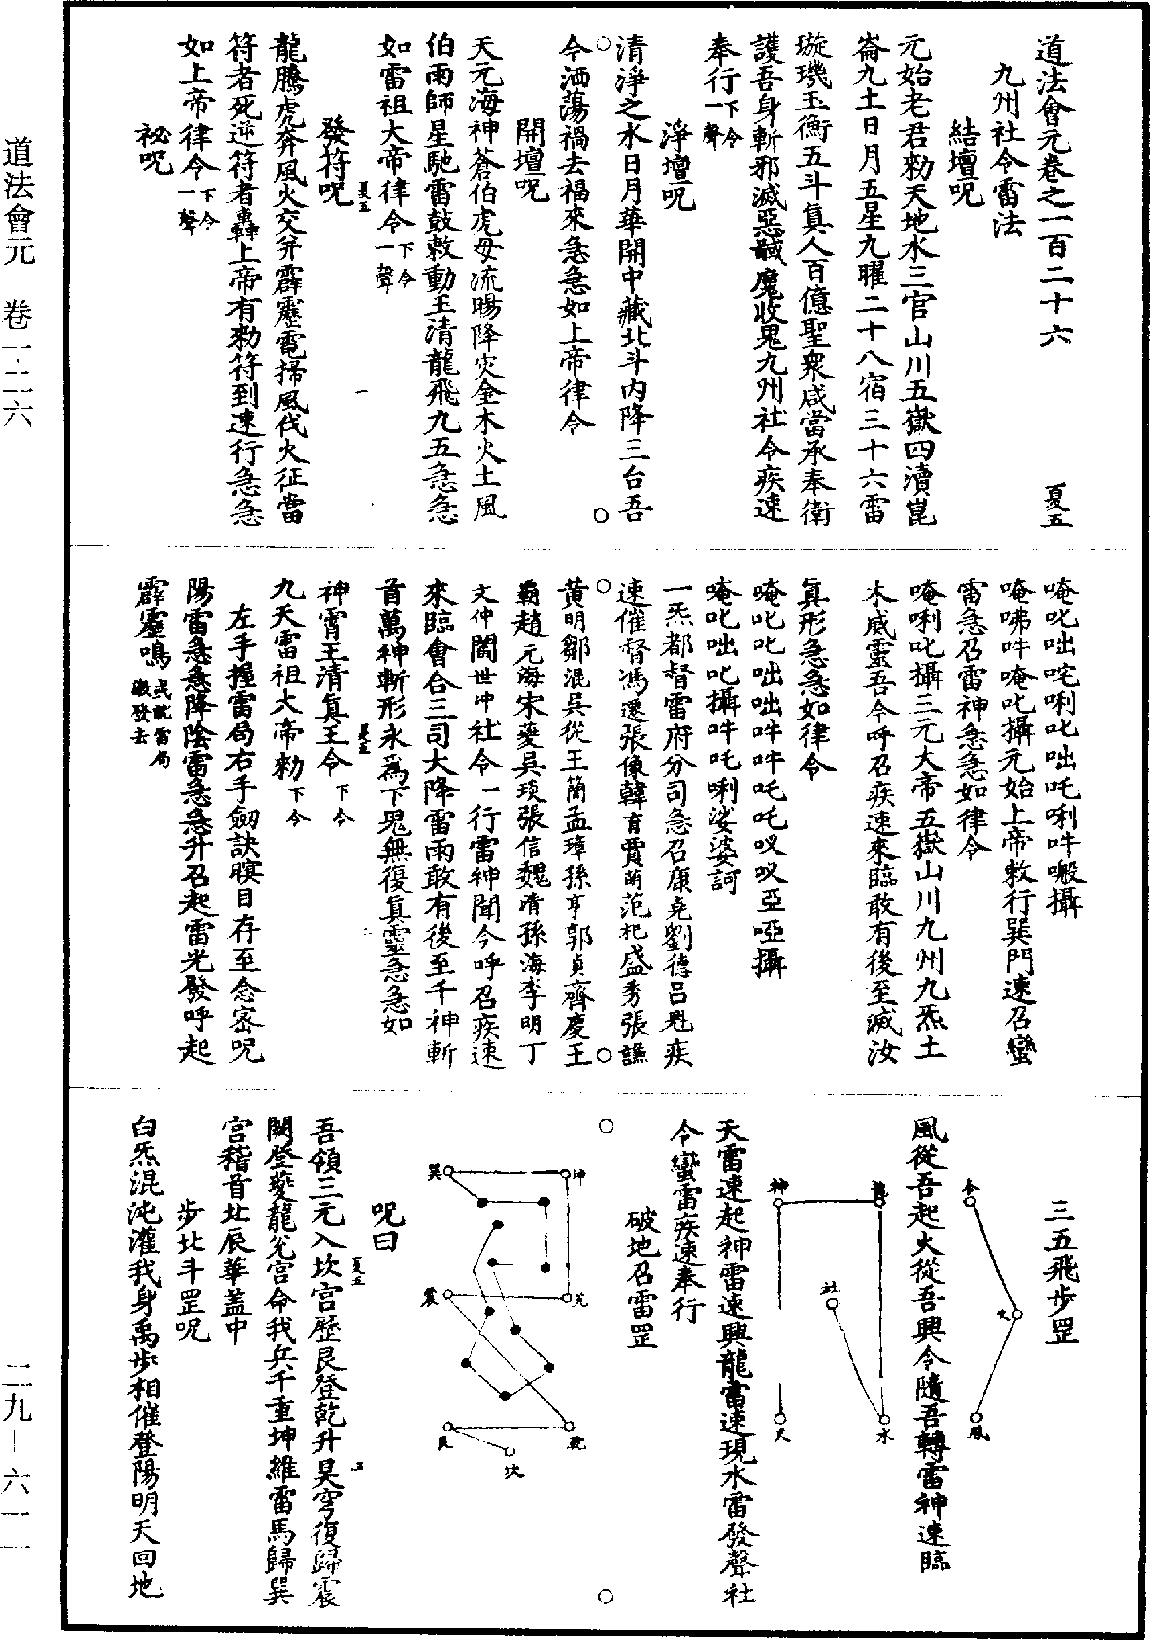 道法會元卷之一百二十六 夏五
九州社令雷法
結壇呪
元始老君勑天地水三官山川五嶽四瀆崑
崙九土日月五星九曜二十八宿三十六雷
璇璣玉衡五斗真人百億聖衆咸當承奉衛
護吾身斬邪滅惡馘魔收鬼九州社令疾速
奉行一下令聲
淨壇呪
清淨之水日月華開中藏北斗內降三台吾
今洒蕩禍去福來急急如上帝律令
開壇呪
天元海神蒼伯虎母流暘降灾金木火土風
伯雨師星馳雷鼓敕動玉清龍飛九五急急
如雷祖大帝律令一下令聲
夏五 一
發符呪
龍騰虎奔風火交并霹靂電掃風伐火征當
符者死逆符者轟上帝有勑符到速行急急
如上帝律令一下令聲
祕呪
唵叱咄咤唎叱咄吒唎吽㘞攝
唵咈吽唵叱攝元始上帝敕行巽門速召蠻
雷急召雷神急急如律令
唵唎叱攝三元大帝五嶽山川九州九炁土
木威靈吾今呼召疾速來臨敢有後至滅汝
真形急急如律令
唵叱叱咄咄吽吽吒吒㕥㕥亞啞攝
唵叱咄叱攝吽吒唎娑婆訶
一炁都督雷府分司急召康堯劉德呂魁疾
速催督馮遷張像韓育賈茵范杞盛秀張譓
黄明鄒混吳從王簡孟璋孫亨郭貞齊慶王
霸趙元海宋夔吳琰張信魏清孫海李明丁
文仲閻世冲社令一行雷神聞今呼召疾速
來臨會合三司大降雷雨敢有後至千神斬
首萬神斬形永爲下鬼無復真靈急急如
神霄玉清真王令下令
夏五
九天雷祖大帝勑下令
左手握雷局右手劒訣瞑目存至念密呪
陽雷急急降陰雷急急升召起雷光發呼起
霹靂鳴或說雷局激發去
三五飛步罡
令
火
風
龍
神
社
水
天
風從吾起火從吾興令隨吾轉雷神速臨
天雷速起神雷速興龍雷速現水雷發聲社
令蠻雷疾速奉行
破地召雷罡
巽
坤
震
兑
艮
乾
坎
呪曰
吾領三元入坎宫歷艮登乾升昊穹復歸震
夏五
闕登夔龍兑宫命我兵千重坤維雷馬歸巽
宫稽首北辰華蓋中
步北斗罡呪
白炁混沌灌我身禹步相催登陽明天回地
道法會元 卷一二六
二九—六一一